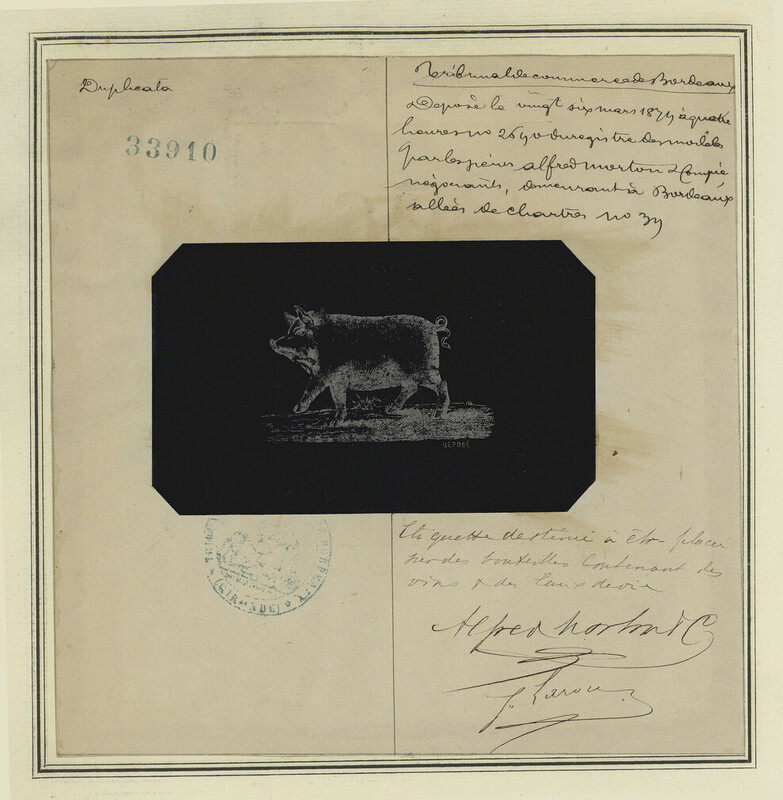 Duplicata
33910
Tribunal de commerce de Bordeaux
Deposé le vingt six mars 187 à quatre
heures no 26 du registre des modèles
par les sieurs alfred morton & Compie
négociants, demeurant à Bordeaux
allées de chartres no 39
DEPOSÉ
Etiquette destiné à être placer
sur des bouteilles Contenant des
vins & des Eaux de vie
(GIRONDE)
Alfred Morton & C